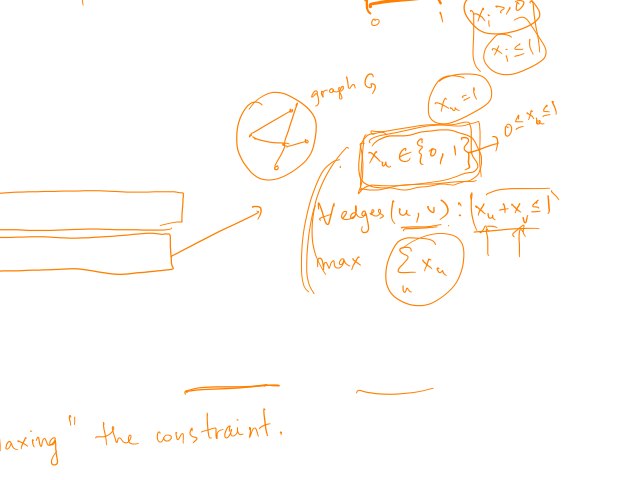 0 1 x_i ≥ 0
x_i ≤ 1
graph G
x_u = 1
0 ≤ x_u ≤ 1
x_u ∈ {0, 1}
∀ edges (u, v) : x_u + x_v ≤ 1
max ∑_u x_u
axing" the constraint.